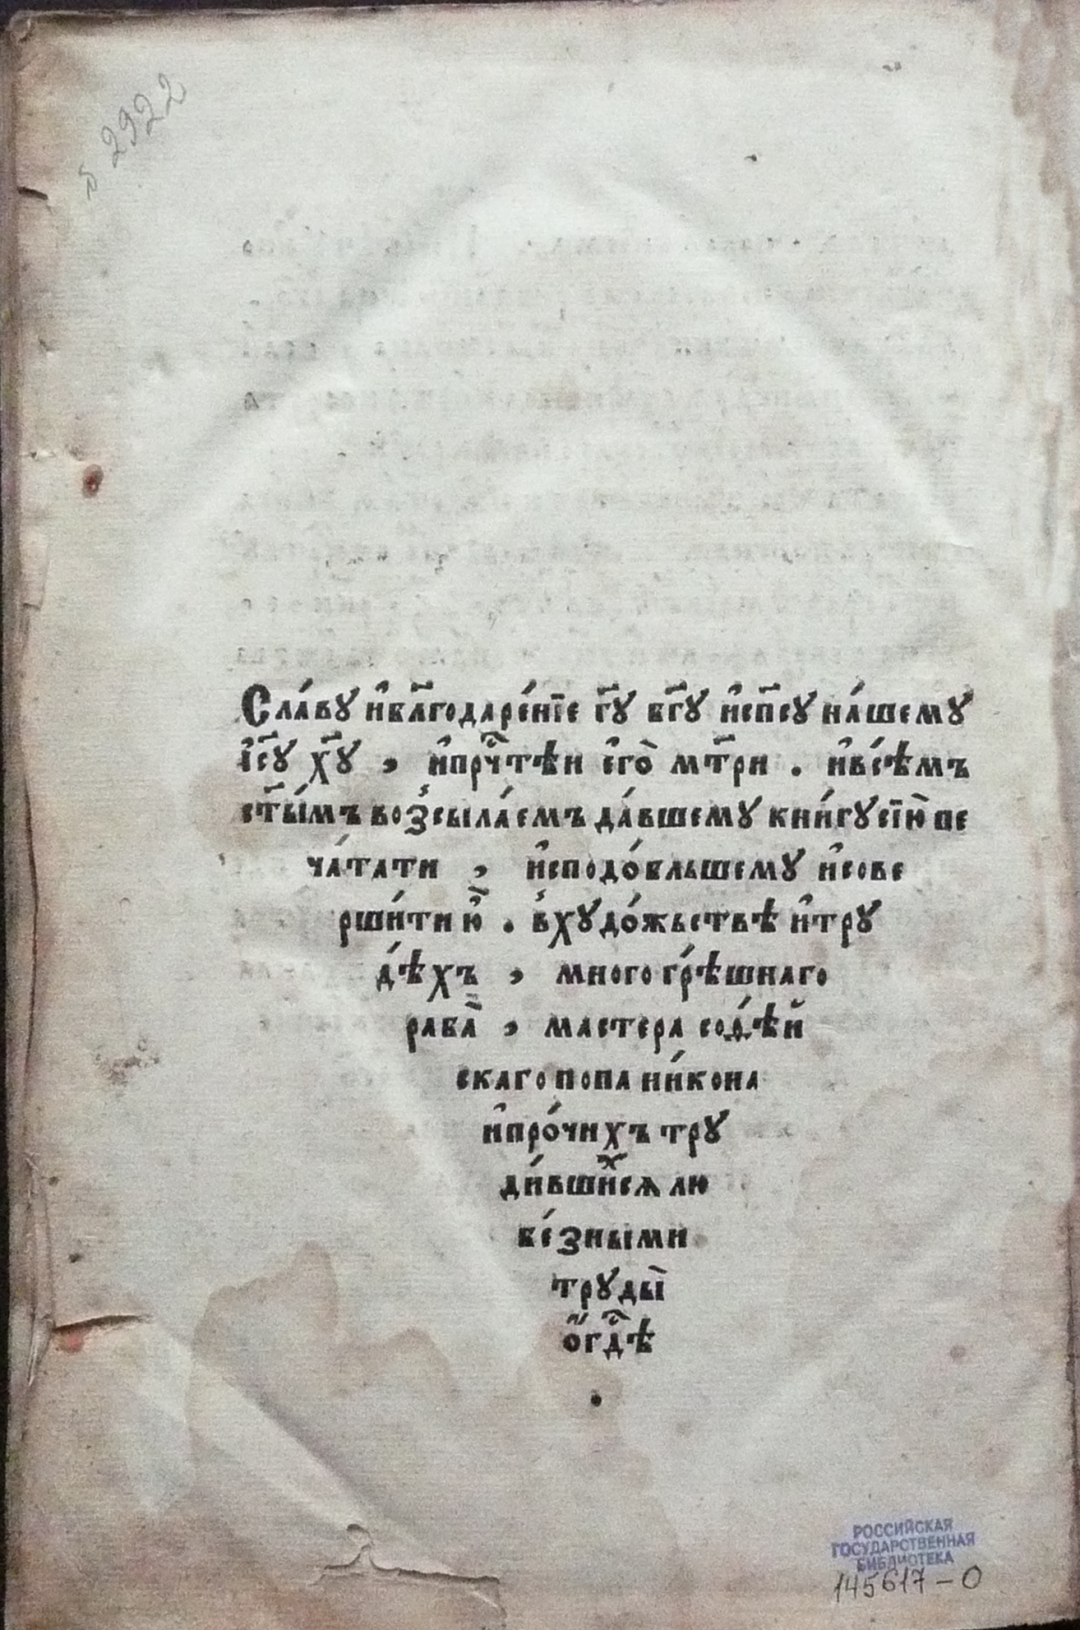 № 2922
Сла́вꙋ и҆бл҃годаре́нїе гⷭ҇ꙋ бг҃ꙋ и҆сп҃сꙋ на́шемꙋ
і҆с҃ꙋ хⷭ҇ꙋ , и҆прⷱ҇тѣи є҆гѡ̀ мт҃ри . и҆всѣ́мъ
ст҃ы́мъ возсыла́емъ да́вшемꙋ кни́гꙋсїю̀ пе
ча́тати , и҆сподо́бльшемꙋ и҆сове
рши́ти ю҆̀ . в̾хꙋдо́жьствѣ и҆трꙋ
дѣ́хъ , многогрѣ́шнаго
раба̀ , мастера софѣ́й
скаго попа ни́кона
и҆про́чихъ трꙋ
ди́вшиⷯсѧ лю
бе́зными
трꙋды̀
ѡ҆гдⷭ҇ѣ
.
РОССИЙСКАЯ
ГОСУДАРСТВЕННАЯ
БИБЛИОТЕКА
145617-О